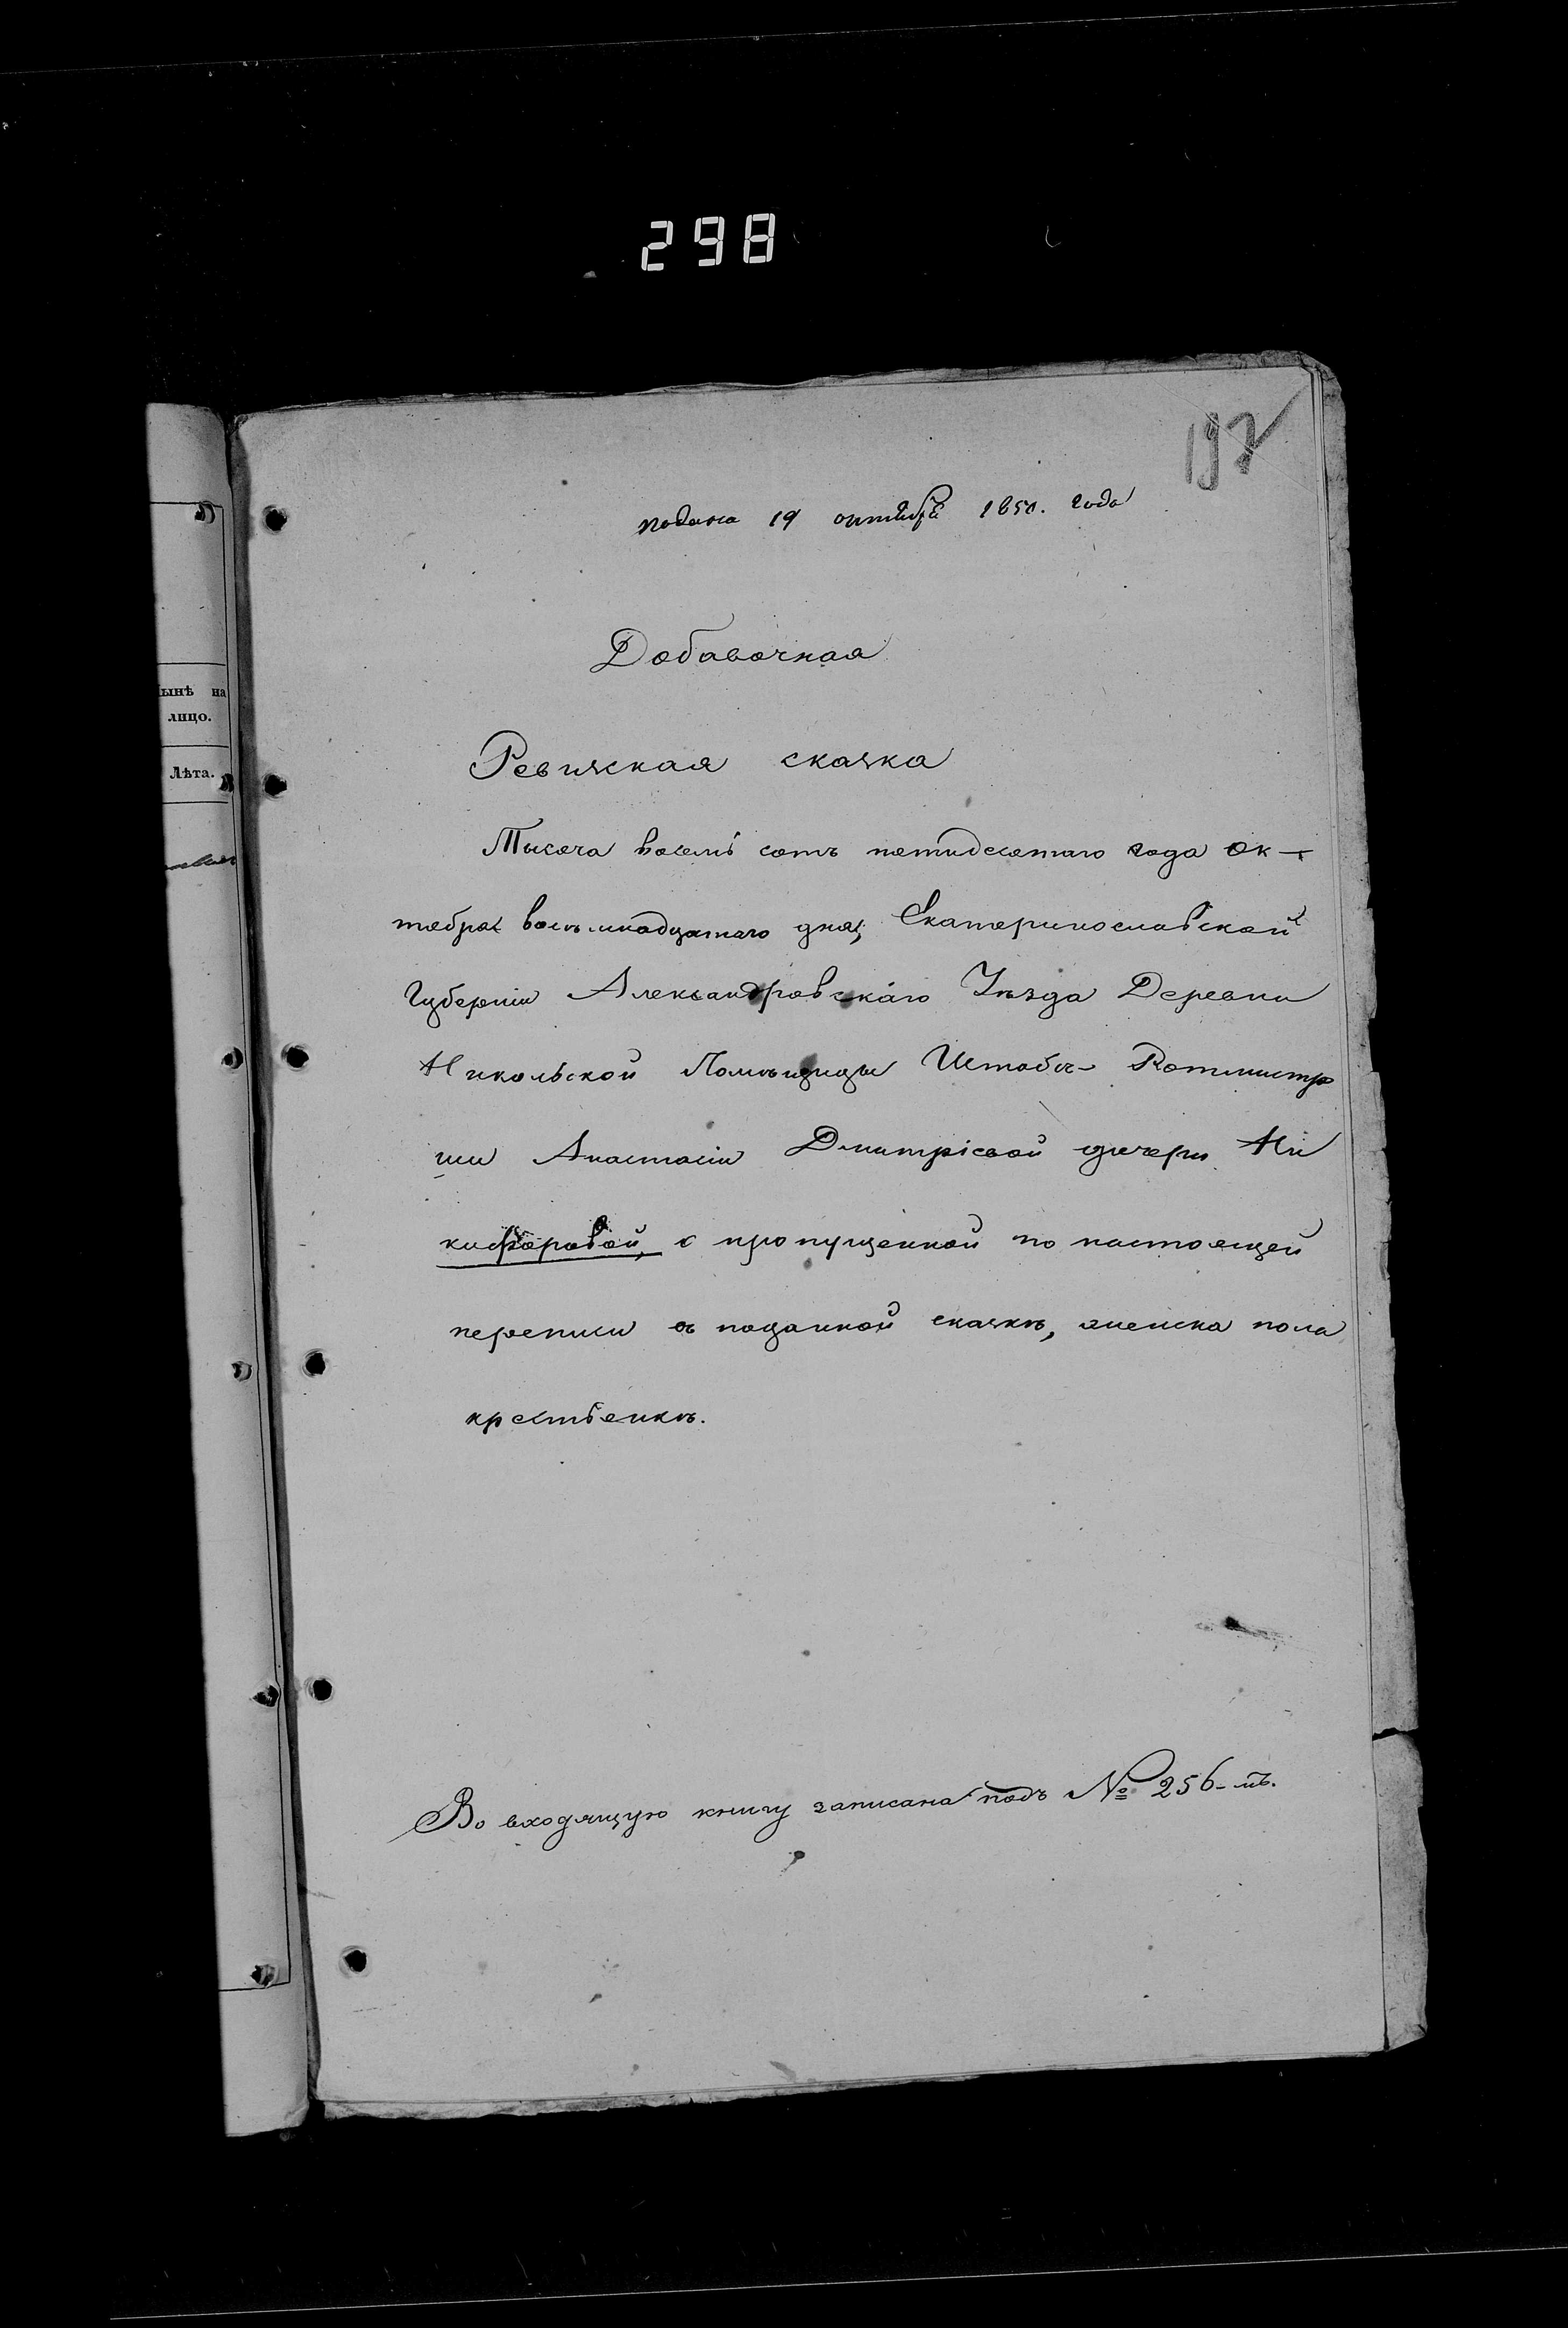 298
197
подана 19 октября 1850. года
Добавочная
Ревизская сказка
Тысеча восемь сотъ петидесятаго года Ок-
тебря восьмнадцатаго дня, Екатеринославской
Губерніи Александровскаго Уезда Деревни
Никольской Помѣщицы Штабсъ-Ротмистр
ши Анастасіи Дмитріевой дочери Ни
кифоровой, о пропущенной по настоящей
переписи въ поданной сказкѣ, женска пола
крестьенкѣ.
Во входящую книгу записана подъ № 256-мъ.
ынѣ на
лицо.
Лѣта.